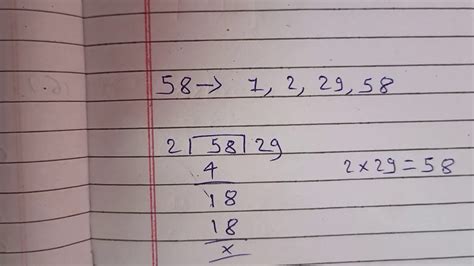 58→ 1, 2, 29, 58
2 58 29
4
2×29=58
18
18
x